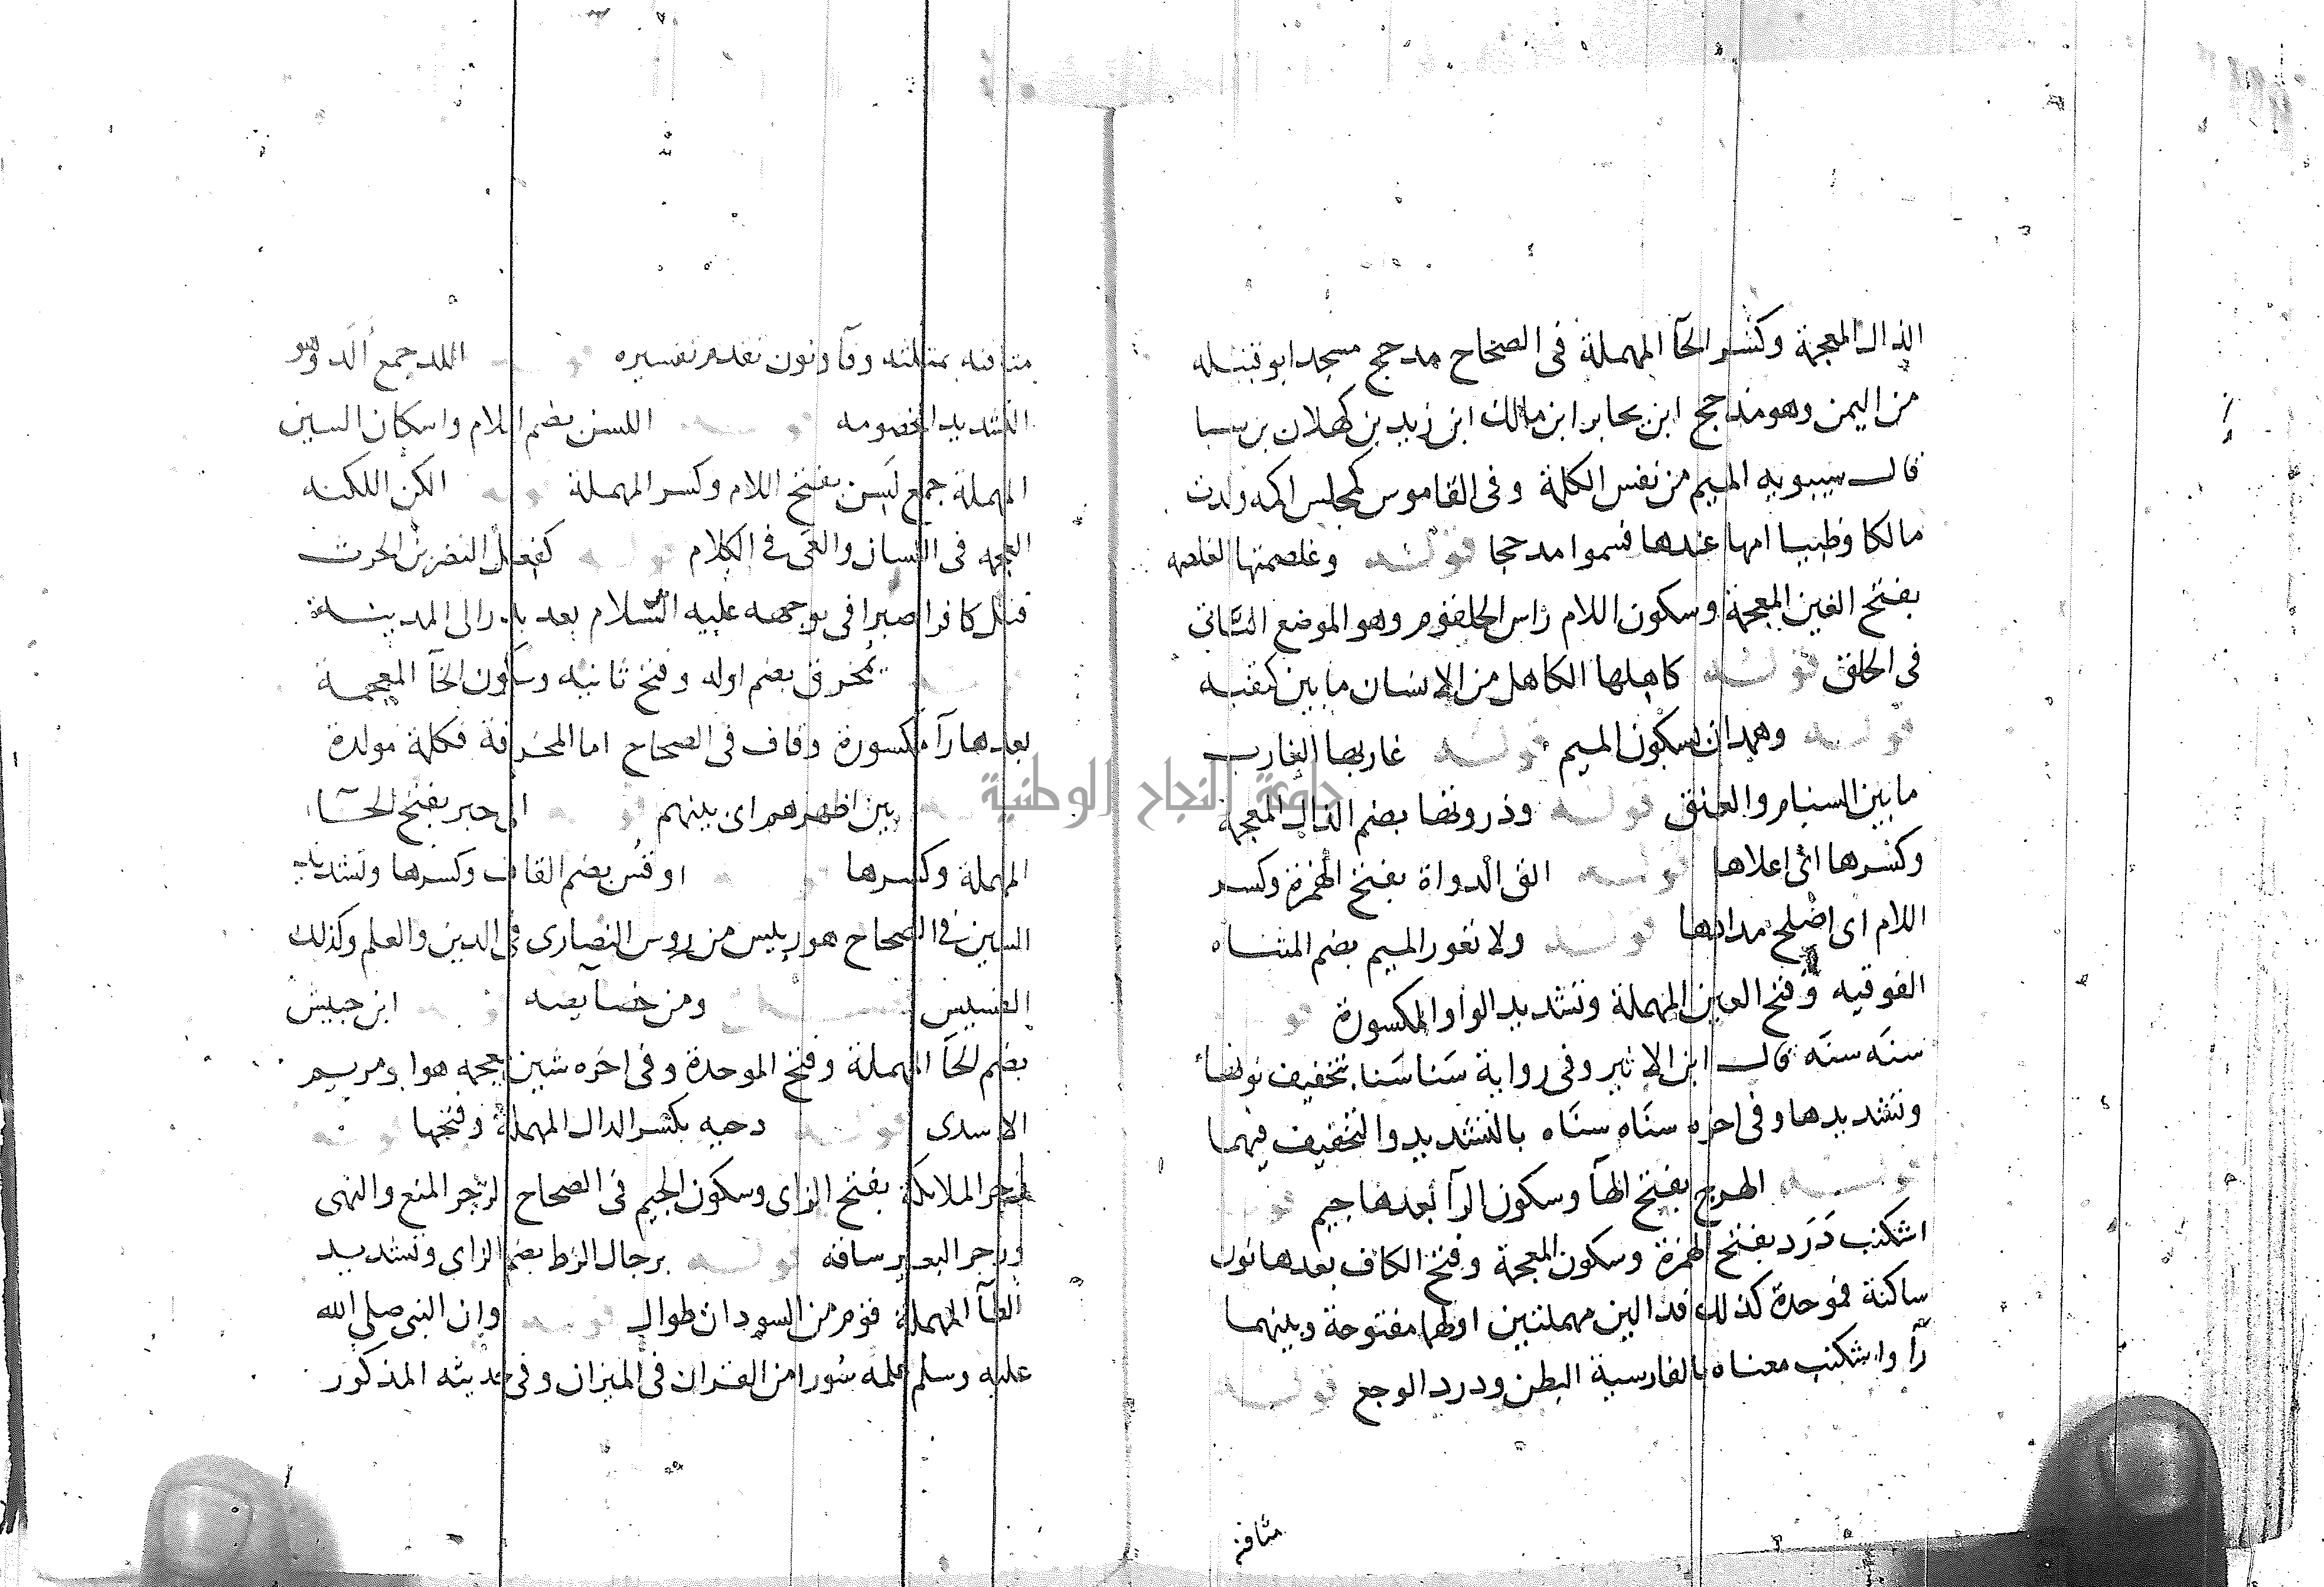 الذال المعجمة وكسر الحآ المهملة فى الصحاح مدحج مسجد ابو قبيله
من اليمن وهو مذحج ابن يحابر ابن مالك ابن زيد بن كهلان بن سبا
قال سيبويه الميم من نفس الكلمة وفى القاموس كمجلس اكمه ولدت
مالكا وطيبا امها عندها فسموا مدحجا قولـــه وغلصمتها الغلصمه
بفتح الغين المعجمة وسكون اللام راس الحلقوم وهو الموضع الناتى
فى الحلق قولـــه كاهلها الكاهل من الانسان ما بين كتفيه
قولـــه وهمدان بسكون الميم قولـــه غاربها الغارب
ما بين السنام والعنق قولـــه وذروتها بضم الذال المعجمة
وكسرها اى اعلاها قولـــه الق الدواة بفتح الهمزة وكسر
اللام اى اصلح مدادها قولـــه ولا تعور الميم بضم المثناه
الفوقيه وفتح العين المهملة وتشديد الواو المكسورة قو
سنَه سنَه قال ابن الاثير وفى رواية سَنا سَنا بتخفيف نونها
وتشديدها وفى اخره سنَاه سنَاه بالتشديد والتخفيف فيهما
قولـــه الهرج بفتح الهآ وسكون الرآ بعدها جيم قو
اشكنب دَرَد بفتح الهمزة وسكون المعجمة وفتح الكاف بعدها نون
ساكنة فموحدة كذلك فدالين مهملتين اولها مفتوحة وبينهما
رآ واشكنب معناه بالفارسية البطن ودرد الوجع قولـــه
مثافنه
مثافنه بمثلثه وفآ ونون تقدم تفسيره قو اللد جمع ألد وهو
الشديد الخصومه قولـــه اللسن بضم اللام واسكان السين
المهملة جمع لَسِن بفتح اللام وكسر المهملة قوله الكن اللكنه
العجمه فى اللسان والعى فى الكلام قولـــه كفعل النضر بن الحرث
قتل كافرا صبرا فى توجهه عليه السّلام بعد بدر الى المدينة
يُمخرق بضم اوله وفتح ثانيه وسكون الخآ المعجمة
بعدها رآ مكسورة وقاف فى الصحاح اما المخرقة فكلمة مولدة
بين اظهرهم اى بينهم قولـــه الى حبر بفتح الحآ
المهملة وكسرها قولـــه او قُس بضم القاف وكسرها وتشديد
السين فى الصحاح هو رييس من روس النصارى فى الدين والعلم وكذلك
القسيس ومن خصآيصه قولـــه ابن حبيش
بضم الحآ المهملة وفتح الموحدة وفى اخره شين معجمه هو ابو مريم
الاسدى قولـــه دحيه بكسر الدال المهملة وفتحها قوله
زجر الملايكة بفتح الزاى وسكون الجيم فى الصحاح الزجر المنع والنهى
وزجر البعير ساقه قولـــه برجال الزط بضم الزاى وتشديد
الطآ المهملة قوم من السودان طوال قولـــه وان النبى صلى الله
عليه وسلم علمه سُورا من القران فى الميزان وفى حديثه المذكور
جامعة النجاح الوطنية